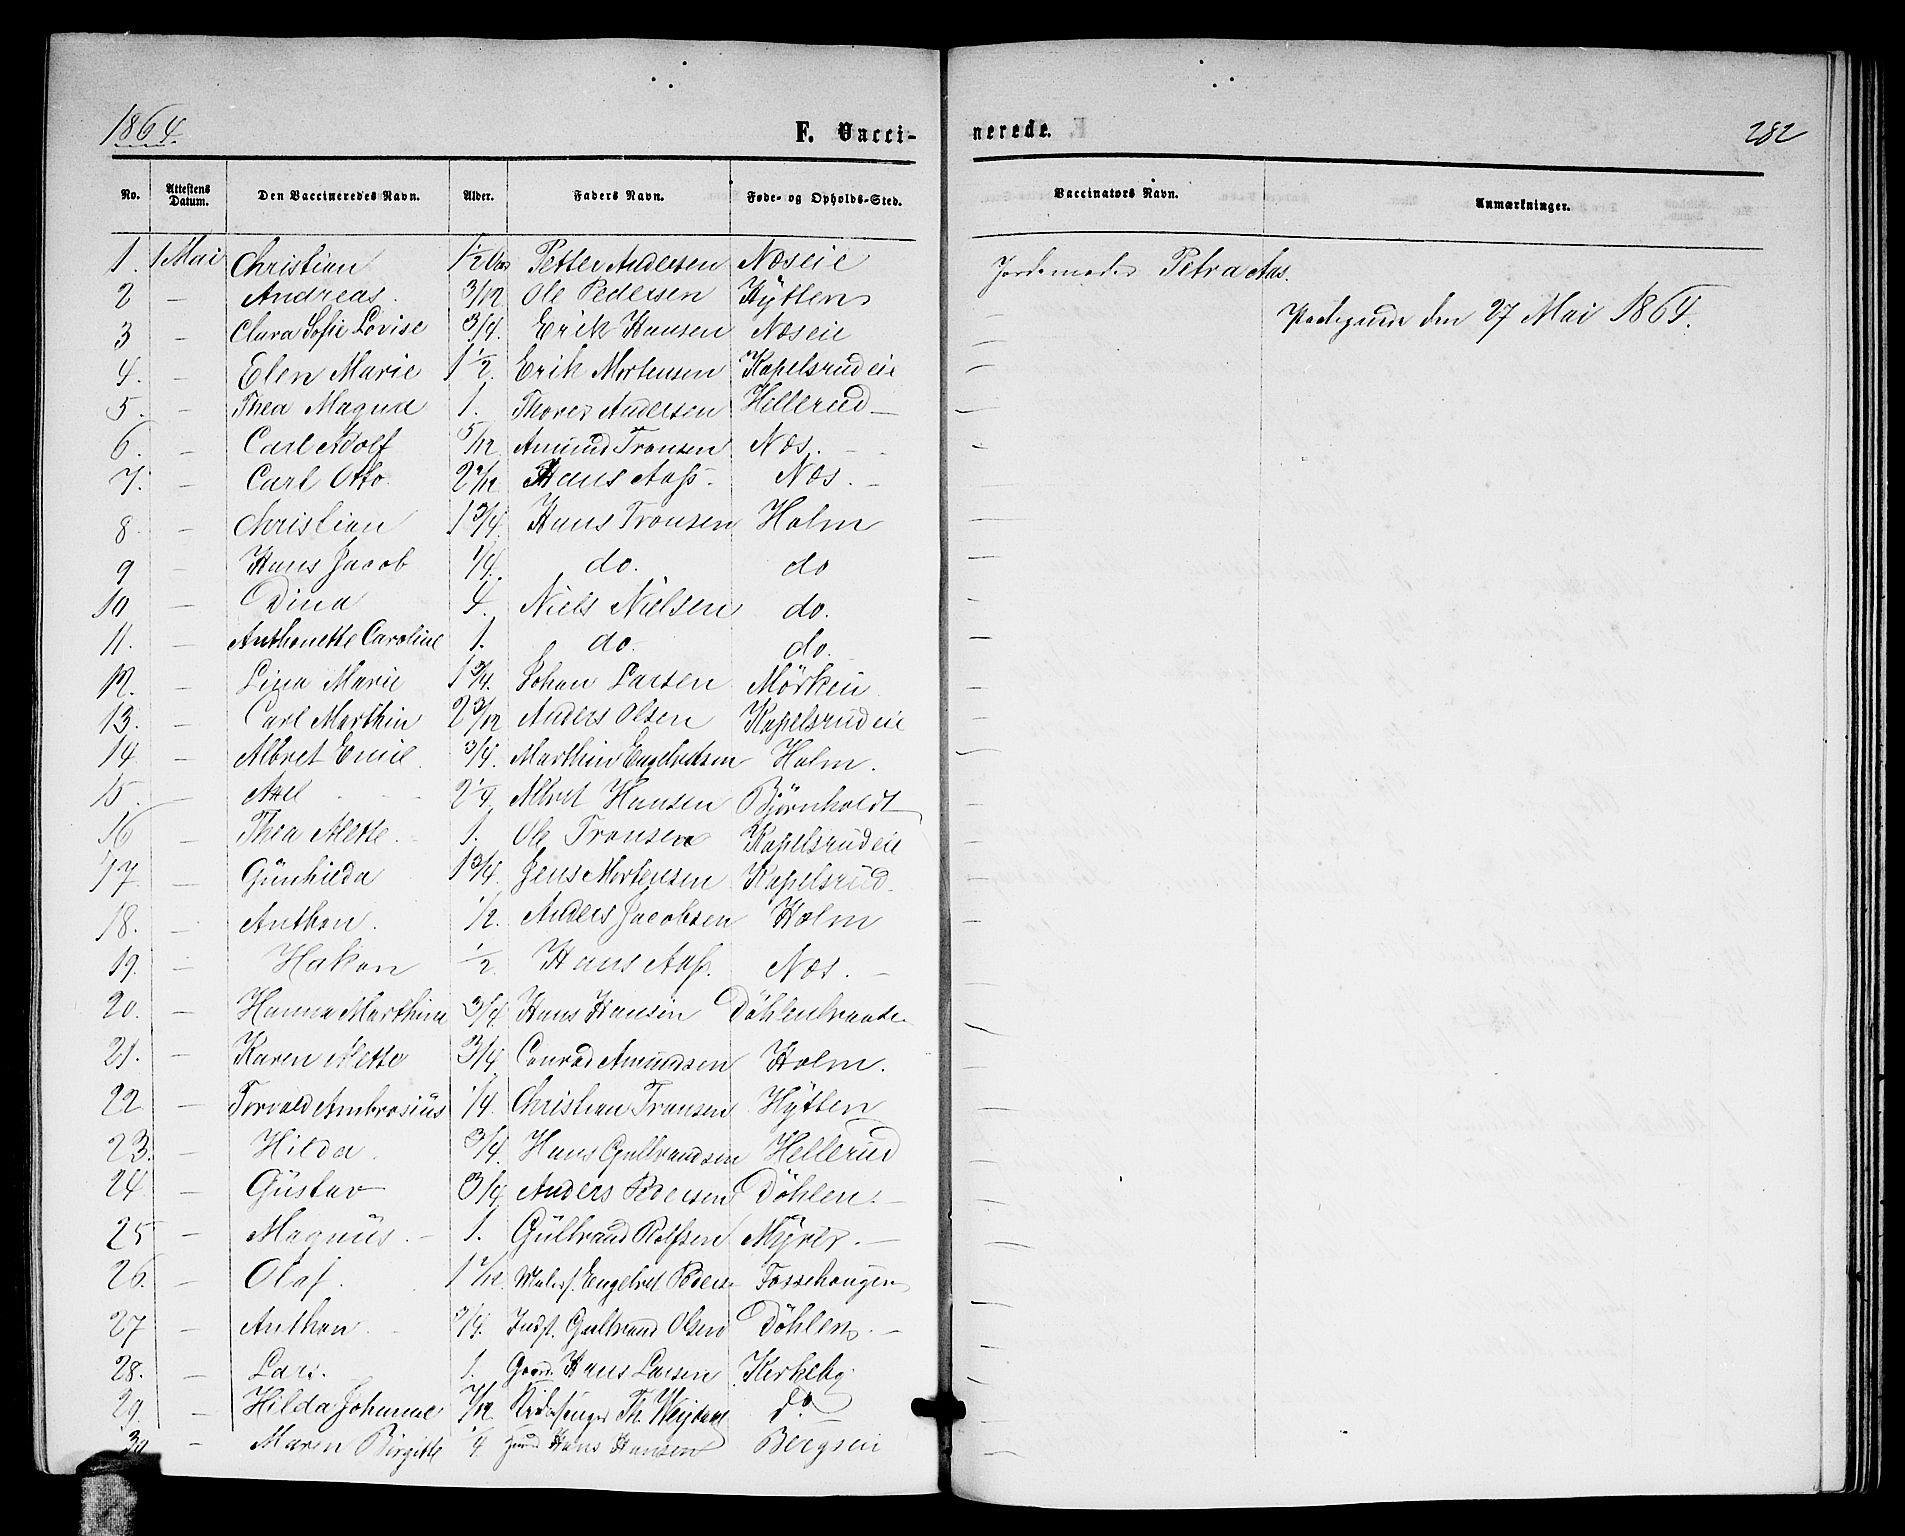 1864.
F. Vacci-
nerede.
282
No. Attestens Datum. Den Vaccineredes Navn. Alder. Faders Navn. Føde- og Opholds-Sted. Vaccinators Navn. Anmærkninger.
1. 1 Mai Christian 1/2 Petter Andersen Næseie Jordemoder Petra Aas.
2 — Andreas. 3/12 Ole Pedersen Hÿtten —
den 27 Mai 1864.
3 — Clara Sofie Lovise 3/4. Erik Hansen Næseie —
4. — Elen Marie 1 1/2. Erik Mortensen Kapelsrudeie —
5. — Thea Magna 1. Thorer Andersen Hellerud —
6. — Carl Adolf 5/12 Amund Tronsen Næs. —
7. — Carl Otto 2 2/12 Hans Aass. Næs. —
8 — Christian 1 3/4. Hans Tronsen Holm —
9 — Hans Jacob 1/4. do. do —
10 — Dina 4. Niels Nielsen do. —
11. — Anthonette Caroline 1. do. do. —
12. — Lina Marie 1 3/4. Johan Larsen Mörkeie —
13. — Carl Marthin 2 3/12 Anders Olsen Kapelsrudeie —
14 — Albret Emil 3/4. Marthin Engebretsen Holm. —
15. — Axel 2 1/4 Albret Hansen Bjørnholdt —
16 — Thea Mette. 1. Ole Tronsen Kapelsrudeie —
17 — Günhilda 1 3/4. Jens Mortensen Kapelsrud. —
18. — Anthon. 1/2. Anders Jacobsen Holm —
19. — Hakon 1/2 Hans Aass. Næs. —
20. — Hanna Marthine 3/4 Hans Hansen Döhlenbraate. —
21. — Karen Mette 3/4 Conrad Amundsen Holm. —
22 — Torvald Ambrosiüs 1/4. Christian Tronsen Hÿtten —
23. — Hilda. 3/4. Hans Gulbrandsen Hellerud —
24 — Güstav 3/4 Anders Pedersen Döhlen. —
25 — Magnüs. 1. Gülbrand Rolfsen Mÿrer. —
26. — Olaf. 1 2/12. Engebret Peders Fossehougen —
27 — Anthon. 3/4. Indst. Gulbrand Olsen Döhlen. —
28. — Lars. 1. Gaard. Hans Larsen Kirkeby —
29. — Hilda Johanne 7/12 Kirkesanger Th. do —
30 — Maren Birgitte 1/4 Hans Hansen Bergseie —